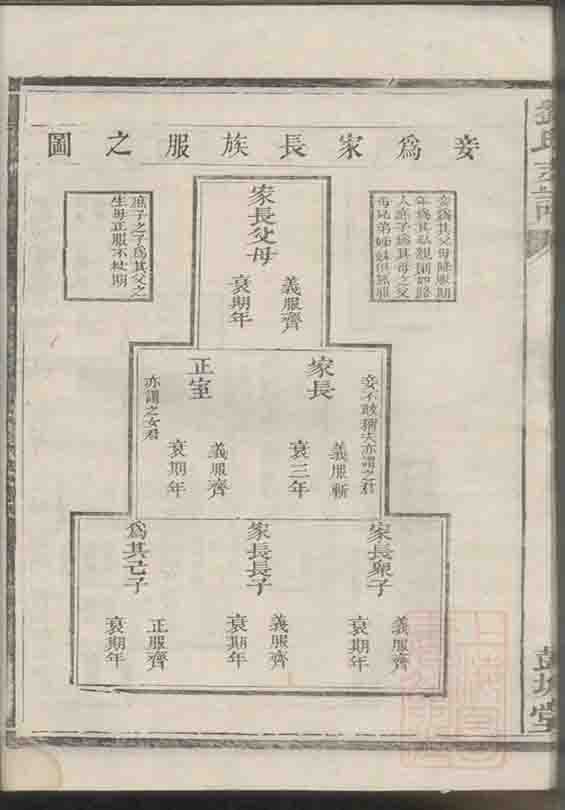 妾爲家長族服之圖
妾爲其父母降服期
年爲其私親則如路
人庶子爲其母之父
母兄弟姊妹俱無服
家長父母
義服齊
衰期年
庶子之子爲其父之
生母正服不杖期
妾不敢稱夫亦謂之君
家長
義服斬
衰三年
正室
義服齊
衰期年
亦謂之女君
家長衆子
義服齊
衰期年
家長長子
義服齊
衰期年
爲其己子
正服齊
衰期年